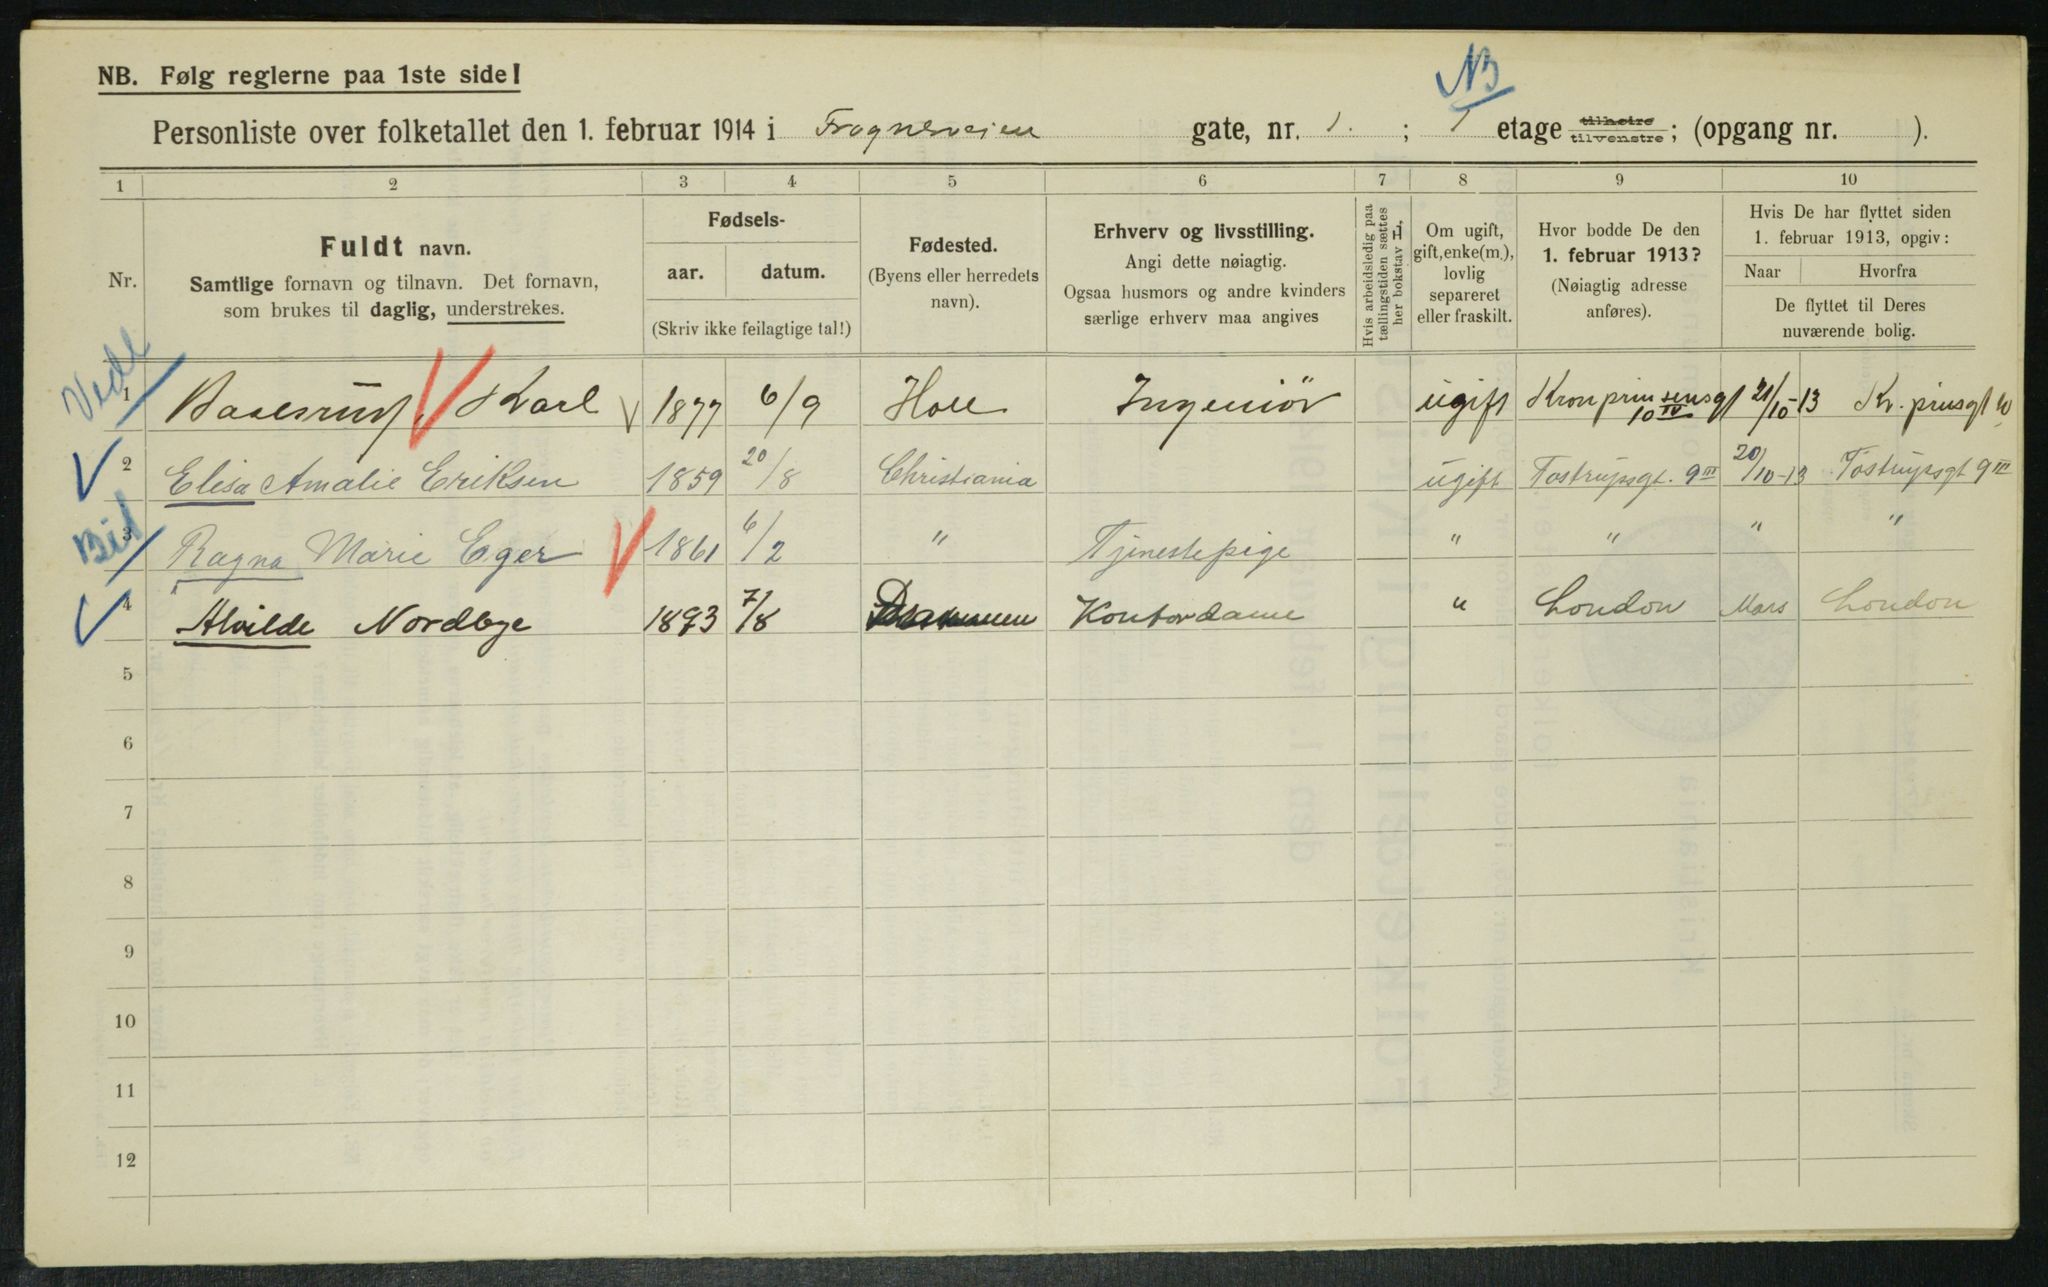 NB. Følg reglerne paa 1ste side!
NB
Personliste over folketallet den 1. februar 1914 i Frognerveien gate, nr. 1. ; 1 etage tilhøire tilvenstre; (opgang nr. ).
1 2 3 4 5 6 7 8 9 10
Nr.
Fuldt navn.
Samtlige fornavn og tilnavn. Det fornavn,
som brukes til daglig, understrekes.
Fødsels-
aar. datum.
(Skriv ikke feilagtige tal!)
Fødested.
(Byens eller herredets
navn).
Erhverv og livsstilling.
Angi dette nøiagtig.
Ogsaa husmors og andre kvinders
særlige erhverv maa angives
Hvis arbeidsledig paa
tællingstiden sættes
her bokstav L,
Om ugift,
gift, enke(m.),
lovlig
separeret
eller fraskilt.
Hvor bodde De den
1. februar 1913?
(Nøiagtig adresse
anføres).
Hvis De har flyttet siden
1. februar 1913, opgiv:
Naar Hvorfra
De flyttet til Deres
nuværende bolig.
1 Karl 1877 6/9 Ingeniör ugift Kronprinsensgt 10 IV 21/10-13 Kr. prinsgt 10
2 Elisa Amalie Eriksen 1859 20/8 Christiania ugift Tostrupsgt. 9 III 20/10-13 Tostrupsgt 9 III
3 Ragna Marie Eger 1861 6/2 " Tjenestepige " " " "
4 Alvilde Nordbye 1893 7/8 Drammen Kontordame " London Mars London
5
6
7
8
9
10
11
12